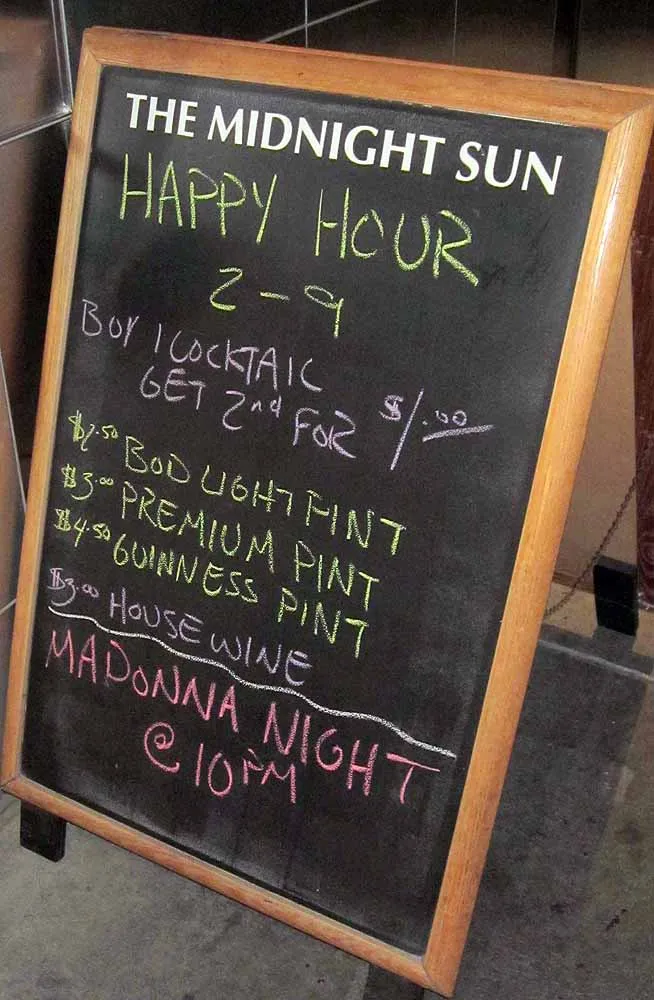 THE MIDNIGHT SUN
HAPPY HOUR
2-9
BUY 1 COCKTAIL
GET 2nd FOR $1.00
$2.50 BUD LIGHT PINT
$3.00 PREMIUM PINT
$4.50 GUINNESS PINT
$3.00 HOUSE WINE
MADONNA NIGHT
@ 10PM